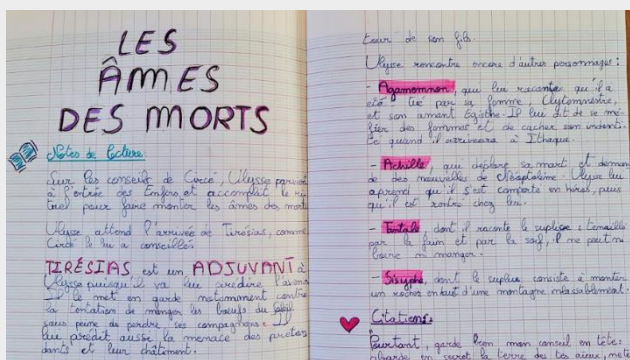 LES
ÂMES
DES MORTS
Notes de lecture
Sur les conseils de Circé, Ulysse parvient
à l'entrée des Enfers et accomplit le ri-
tuel pour faire monter les âmes des morts
Ulysse attend l'arrivée de Tirésias, comme
Circé le lui a conseillé.
TIRÉSIAS est un ADJUVANT à
Ulysse puisqu'il va lui prédire l'avenir
Il le met en garde notamment contre
la tentation de manger les bœufs du Soleil
sous peine de perdre ses compagnons. Il
lui prédit aussi la menace des préten-
dants et leur châtiment.
cœur de son fils.
Ulysse rencontre encore d'autres personnages :
- Agamemnon, qui lui raconte qu'il a
été tué par sa femme, Clytemnestre,
et son amant Égisthe. Il lui dit de se mé-
fier des femmes et de cacher son identi-
té quand il arrivera à Ithaque.
- Achille, qui déplore sa mort et deman-
de des nouvelles de Néoptolème. Ulysse lui
aprend qu'il s'est comporté en héros, puis
qu'il est rentré chez lui.
- Tantale dont il raconte le suplice : tenaillé
par la faim et par la soif, il ne peut ni
boire ni manger.
- Sisyphe, dont le suplice consiste à monter
un rocher en haut d'une montagne inlassablement.
Citations:
Pourtant, garde bien mon conseil en tête:
aborde en secret la terre de tes aieux, mets